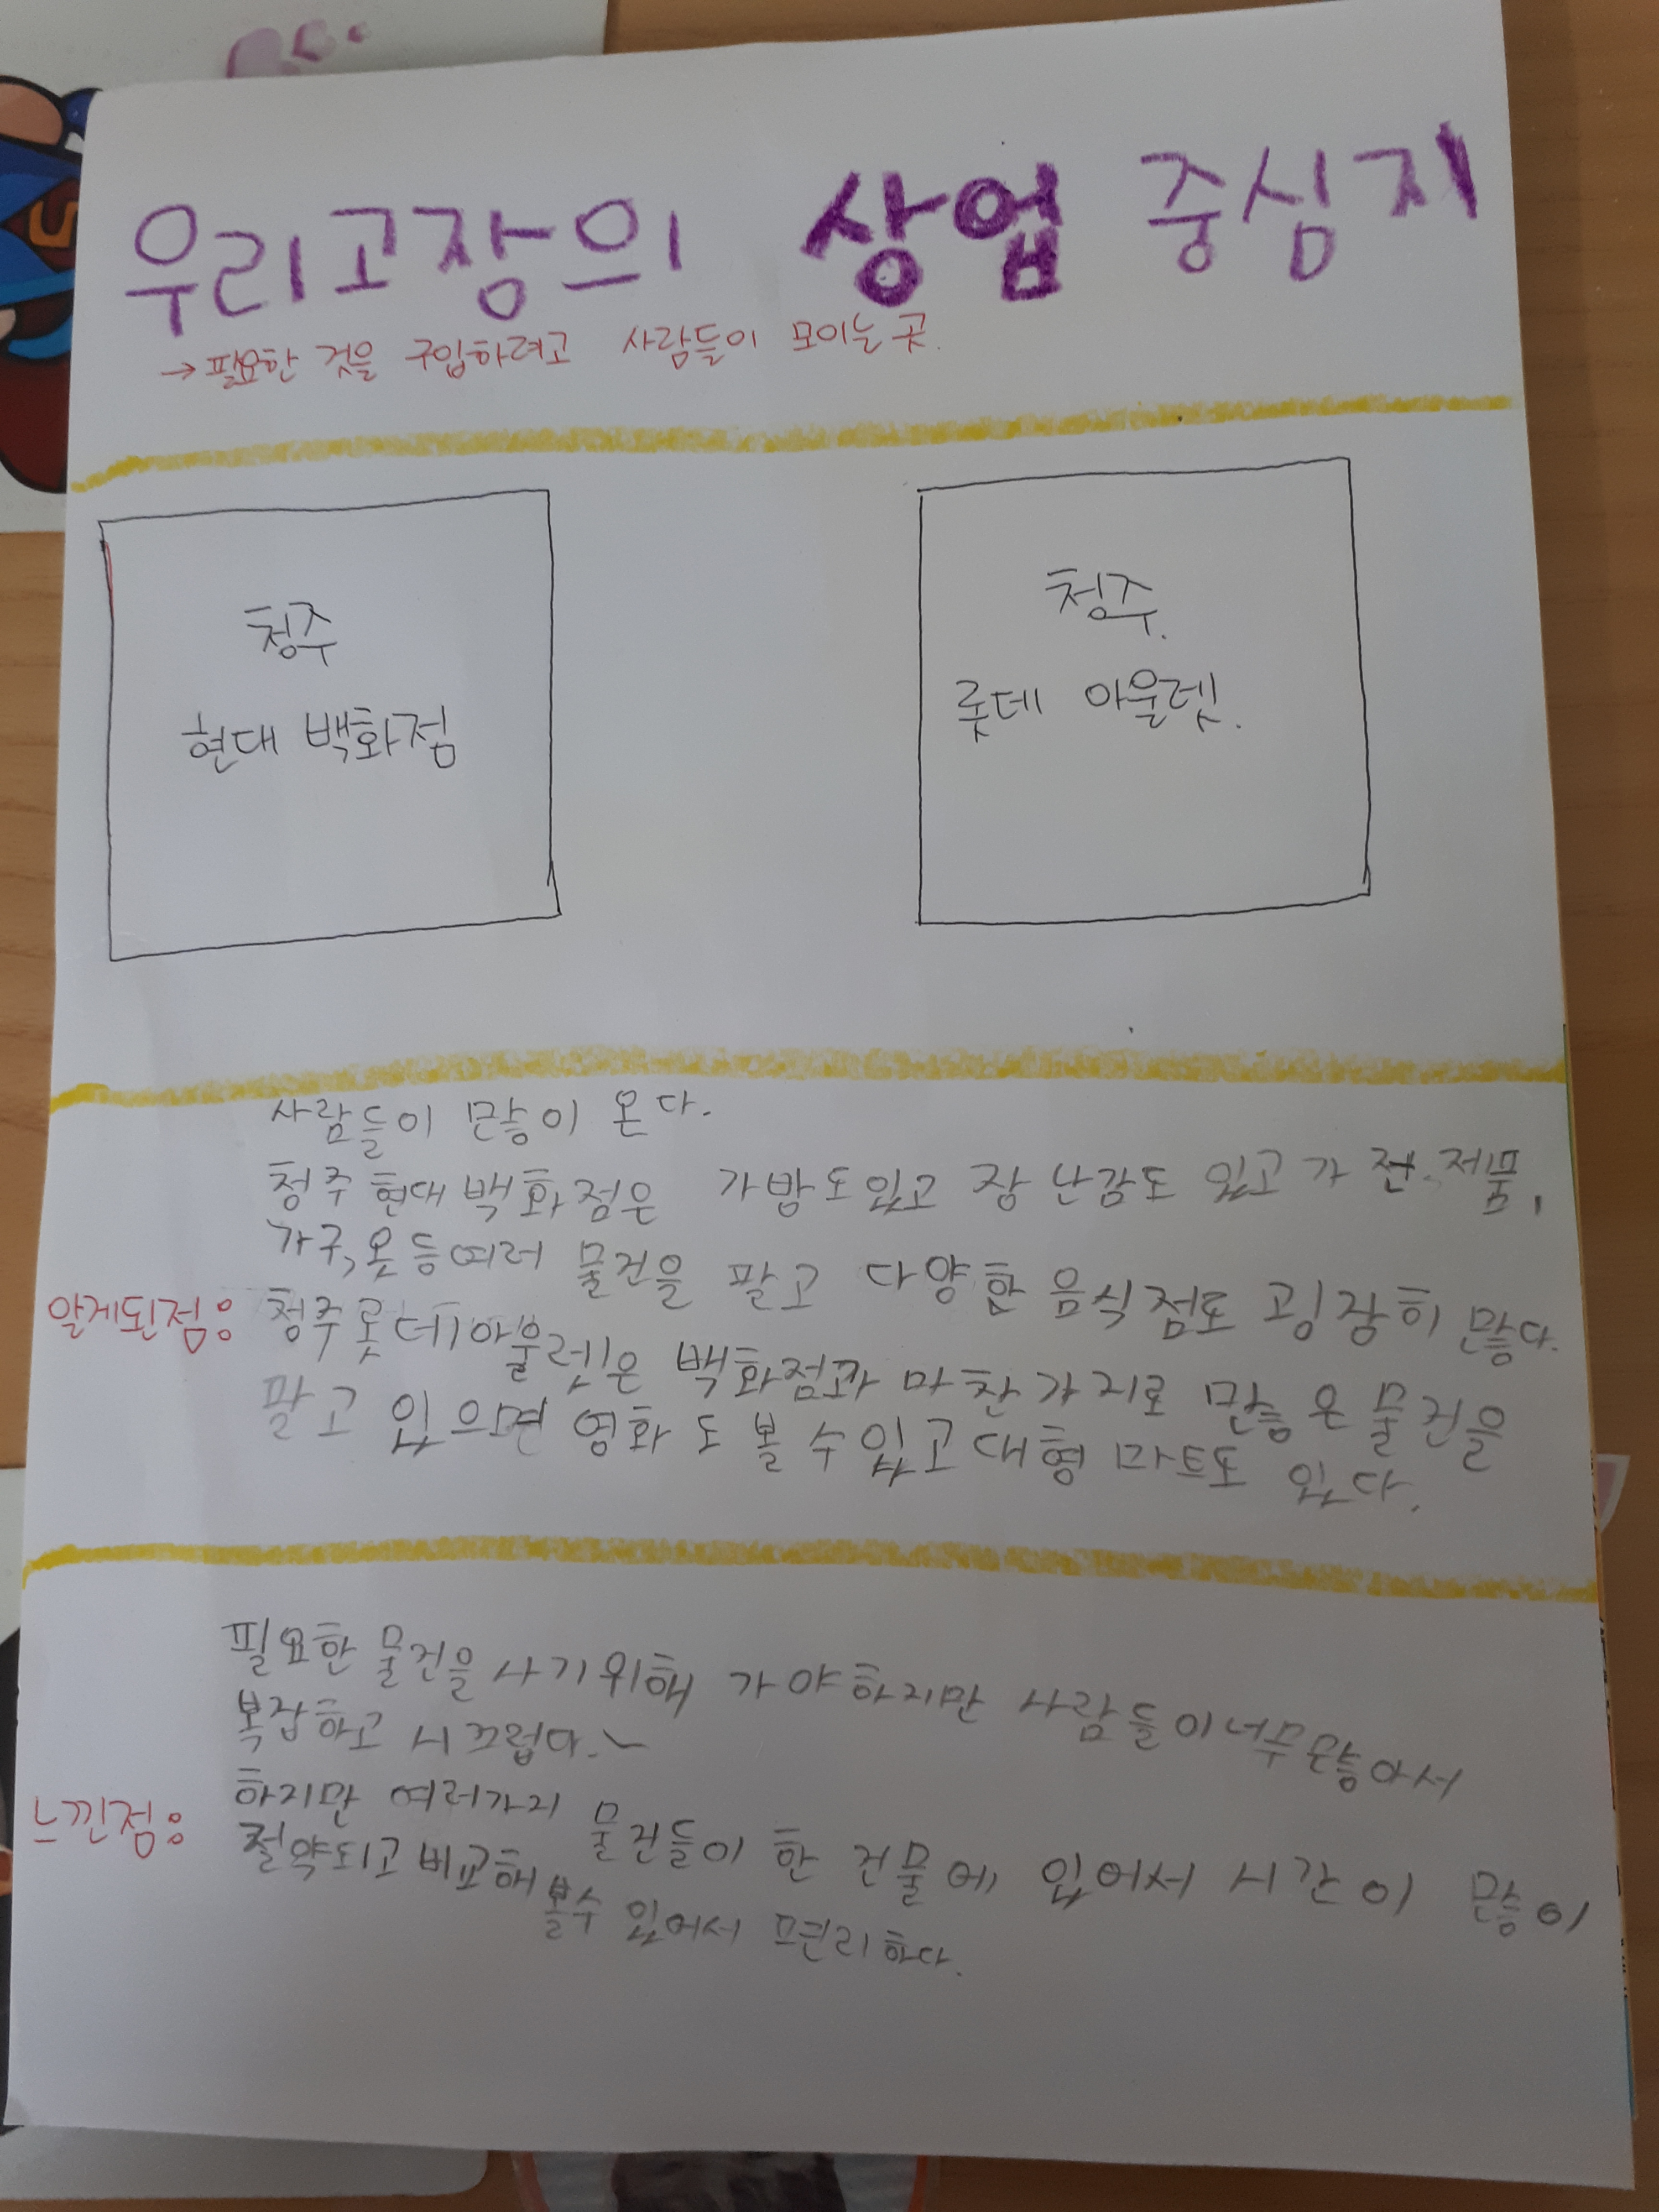 우리고장의 상업 중심지
→ 필요한 것을 구입하려고 사람들이 모이는 곳.
청주
현대 백화점
청주.
롯데 아울렛.
사람들이 많이 온다.
청주 현대 백화점은 가방도있고 장난감도 있고 가전.제품,
가구, 옷 등 여러 물건을 팔고 다양한 음식점도 굉장히 많다.
알게된점: 청주롯데아울렛은 백화점과 마찬가지로 많은 물건을
팔고 있으면 영화도 볼 수 있고 대형 마트도 있다.
필요한 물건을 사기위해 가야하지만 사람들이너무많아서
복잡하고 시끄럽다.~
느낀점: 하지만 여러가지 물건들이 한 건물에 있어서 시간이 많이
절약되고 비교해 볼수 있어서 편리하다.